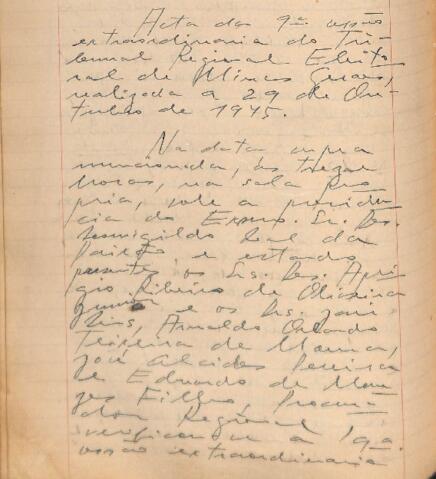 Acta da 9ª sessão
extraordinaria do Tri-
bunal Regional Eleito-
ral de Minas Geraes,
realizada a 29 de Ou-
tubro de 1945.
Na data supra
mencionada, ás treze
horas, na sala pro-
pria, sob a presiden-
cia do Exmo. Sr. Des.
Leal da
Paixão, e estando
presentes os Srs. Des. Apri-
gio Ribeiro de Oliveira
Junior e os Drs. José
Arnaldo Orlando
Teixeira de Moura,
José Alcides Pereira
e Eduardo de Mene-
zes Filho, Procura-
dor Regional,
verificou-se a 9ª
sessão extraordinaria